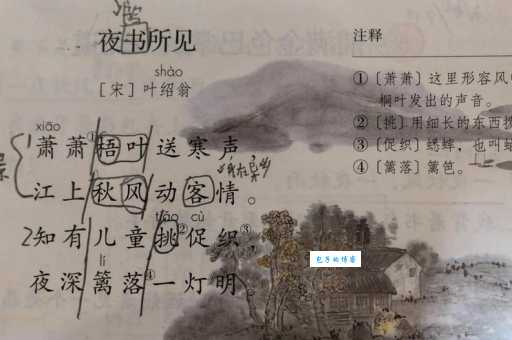 夜书所见
shào
[宋] 叶绍翁
xiāo
萧萧①梧叶送寒声，
江上秋风动客情。
tiǎo cù
知有儿童挑②促织③，
lí
夜深篱落④一灯明。
注释
①〔萧萧〕这里形容风
桐叶发出的声音。
②〔挑〕用细长的东西
③〔促织〕蟋蟀，也叫
④〔篱落〕篱笆。